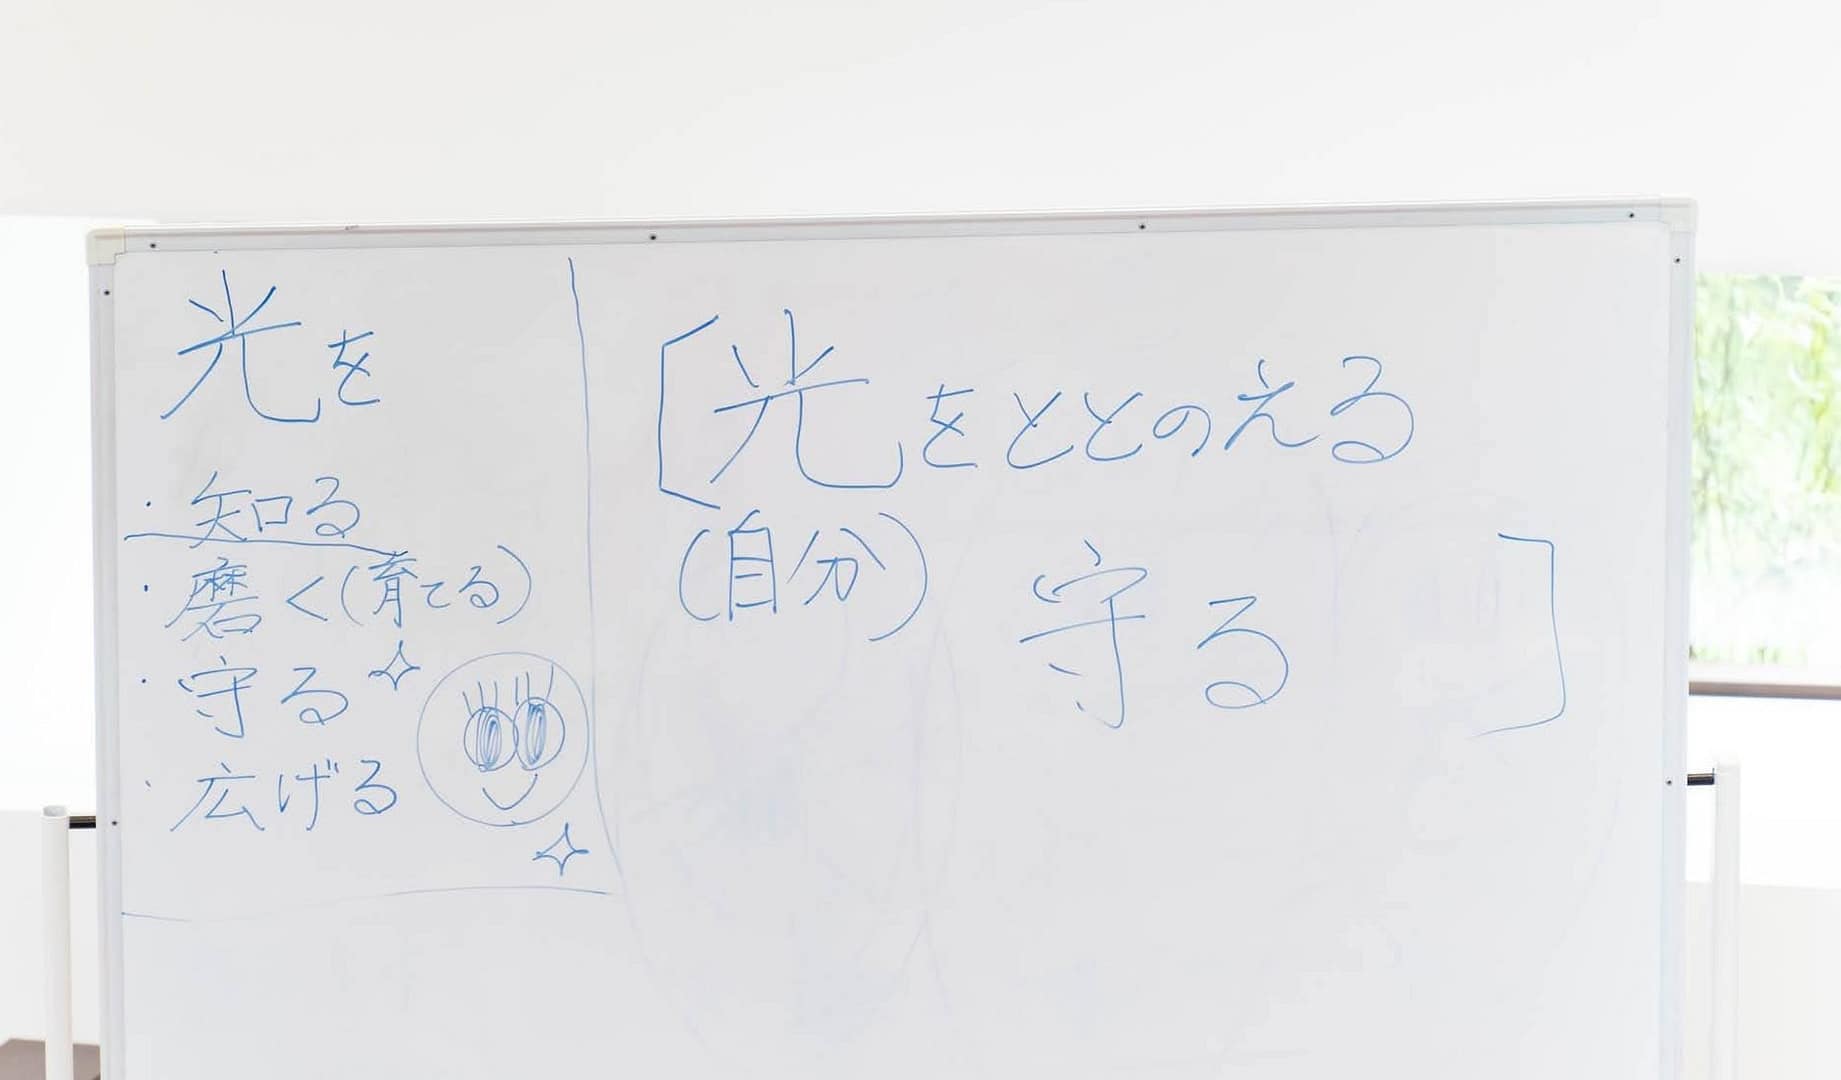 光を
・知る
・磨く(育てる)
・守る
・広げる
[光をととのえる
(自分) 守る ]